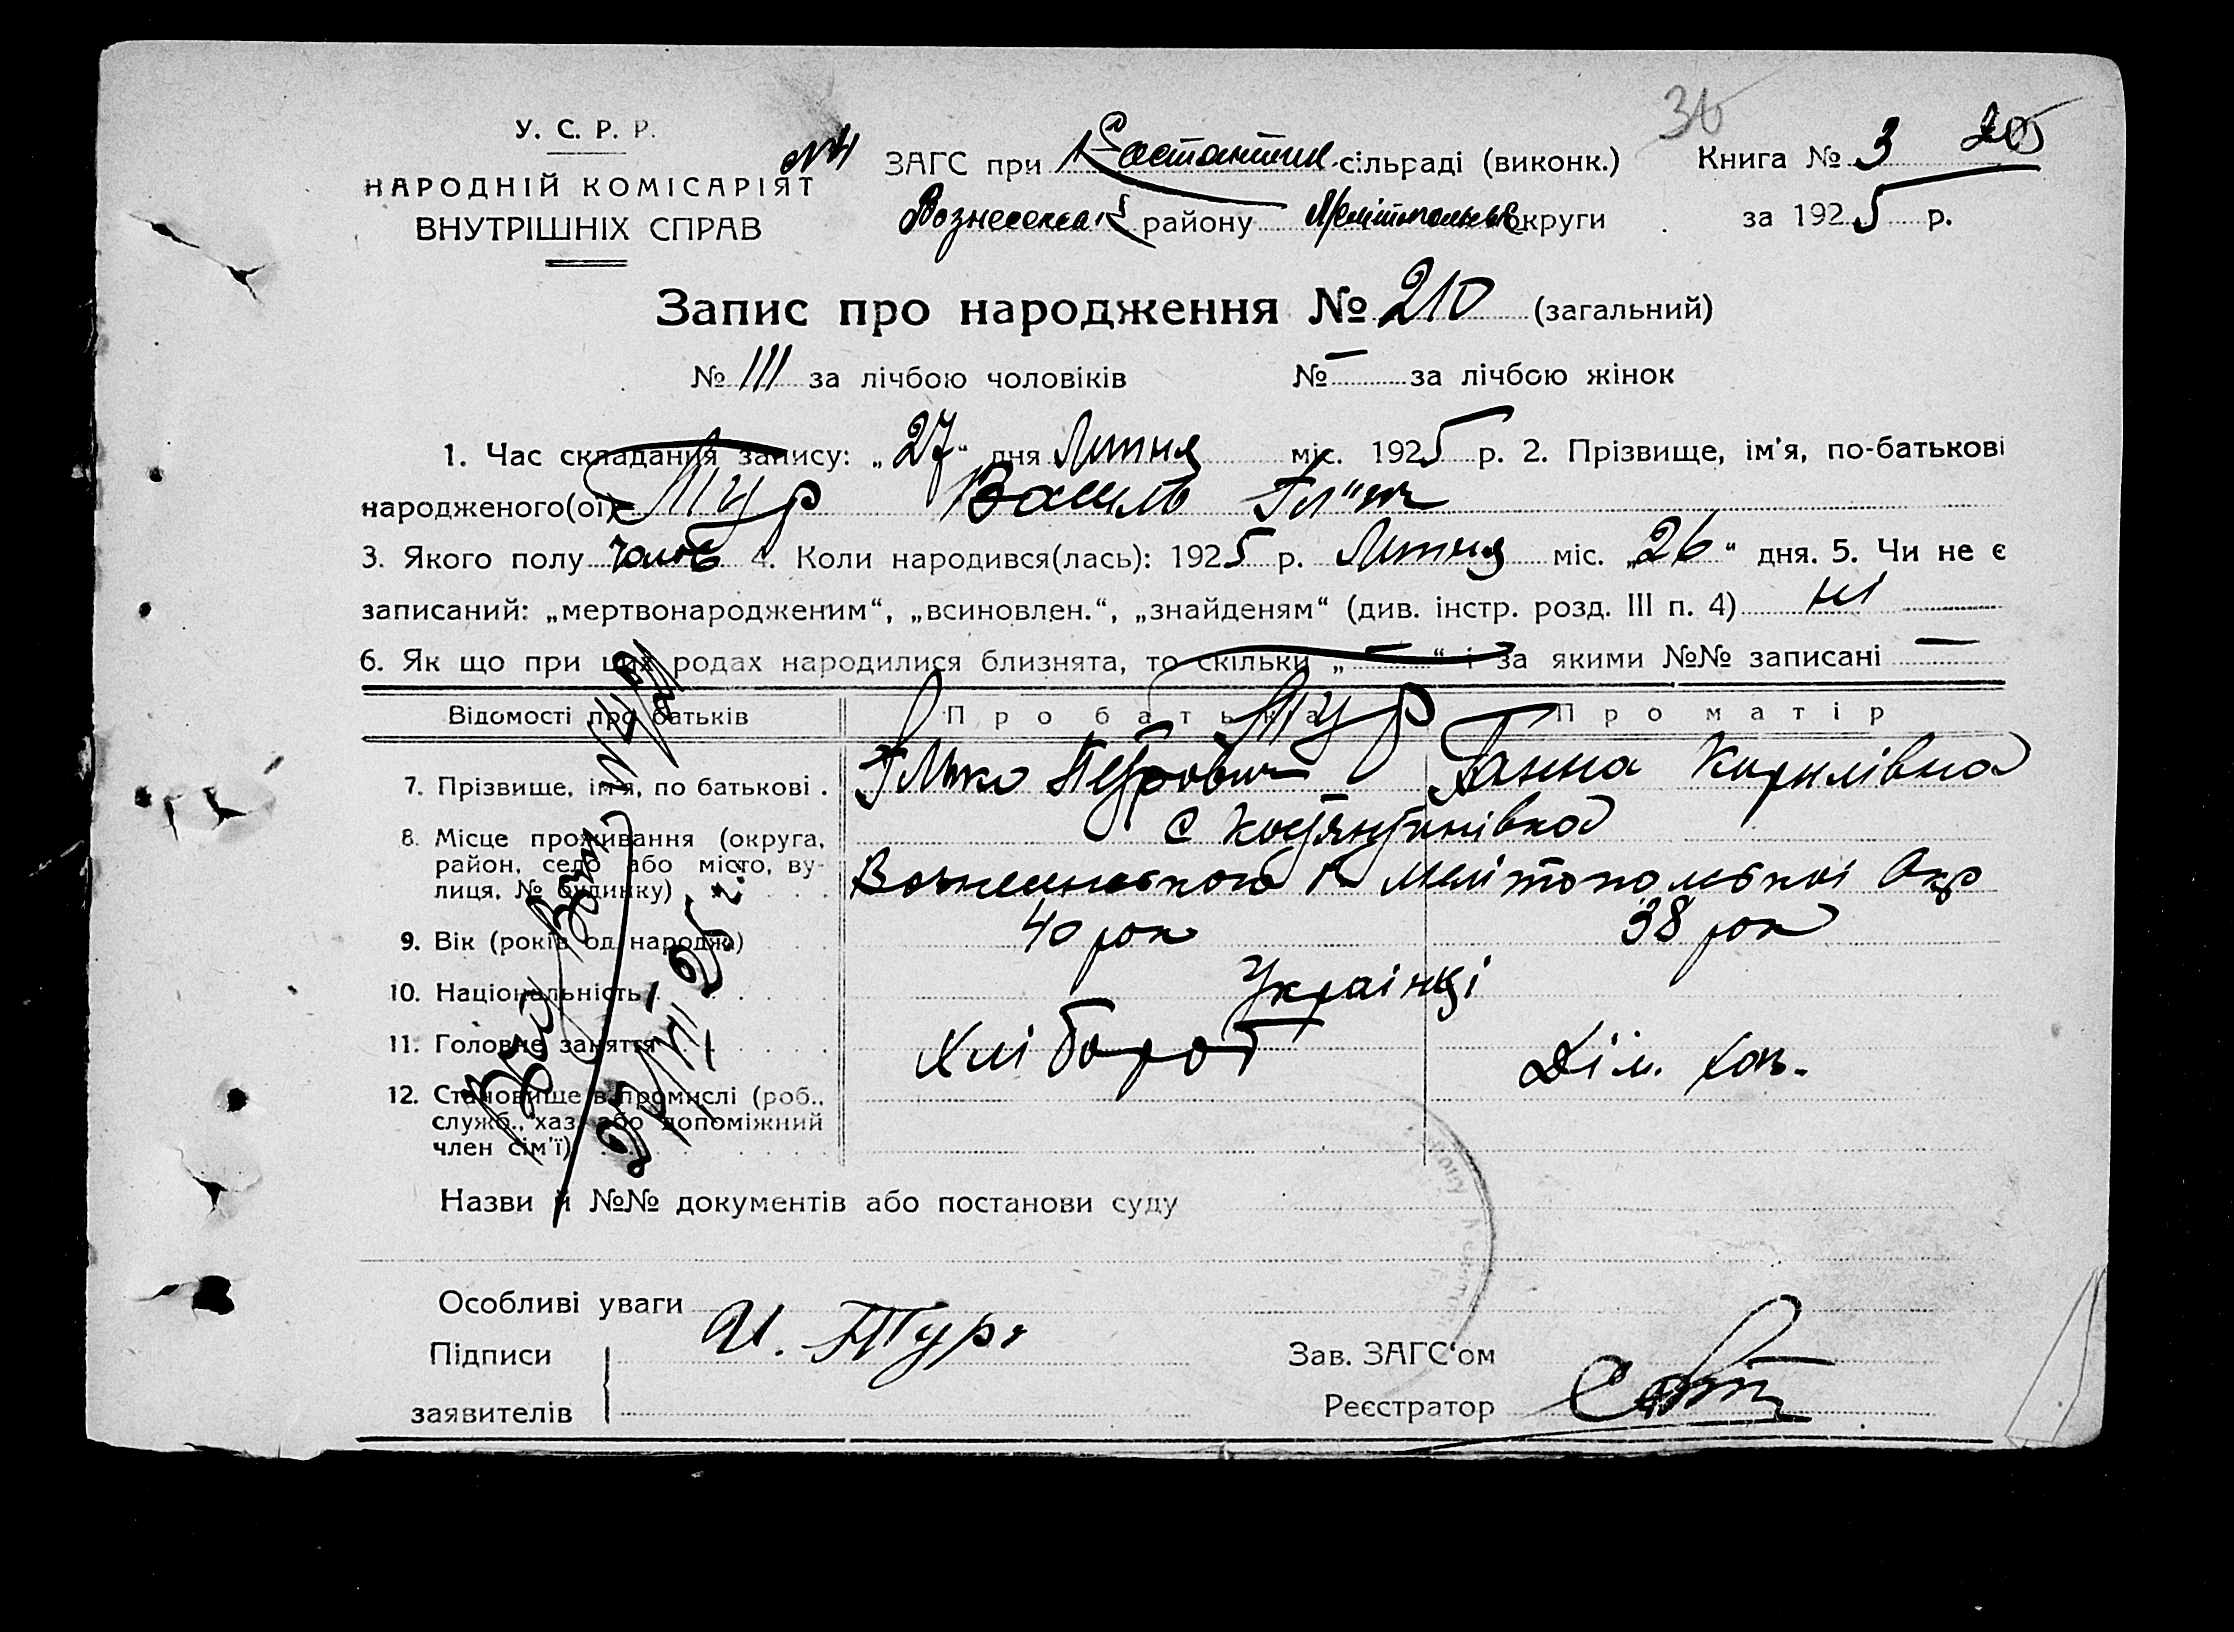 У. С. Р. Р.
НАРОДНІЙ КОМІСАРІЯТ
ВНУТРІШНІХ СПРАВ
ЗАГС при Костантин сільраді (виконк.) Книга № 3
Вознесенск району Мелітопольск округи за 1925 р.
Запис про народження № 210 (загальний)
№ 111 за лічбою чоловіків № — за лічбою жінок
1. Час складання запису: „27“ дня Липня міс. 1925 р. 2. Прізвище, ім'я, по-батькові
народженого(ої) Тур Василь Іл
3. Якого полу чолов 4. Коли народився(лась): 1925 р. Липня міс. „26“ дня. 5. Чи не є
записаний: „мертвонародженим“, „всиновлен.“, „знайденям“ (див. інстр. розд. III п. 4) ні
6. Як що при цих родах народилися близнята, то скільки „ — “ і за якими №№ записані —
Відомості про батьків Про батька Про матір
Тур
7. Прізвище, ім'я, по батькові . Ілько Петрович Ганна Кирилівна
8. Місце проживання (округа, район, село або місто, вулиця, № будинку)
с Костянтинівка
Вознесенського Р Мелітопольскої Окр
9. Вік (років од народж.) 40 рок 38 рок
10. Національність Українці
11. Головне заняття Хлібороб Дім. гос.
12. Становище в промислі (роб., служб., хаз. або допоміжний член сім'ї)
Назви й №№ документів або постанови суду
Особливі уваги
Підписи И. Тур Зав. ЗАГС'ом
заявителів Реєстратор